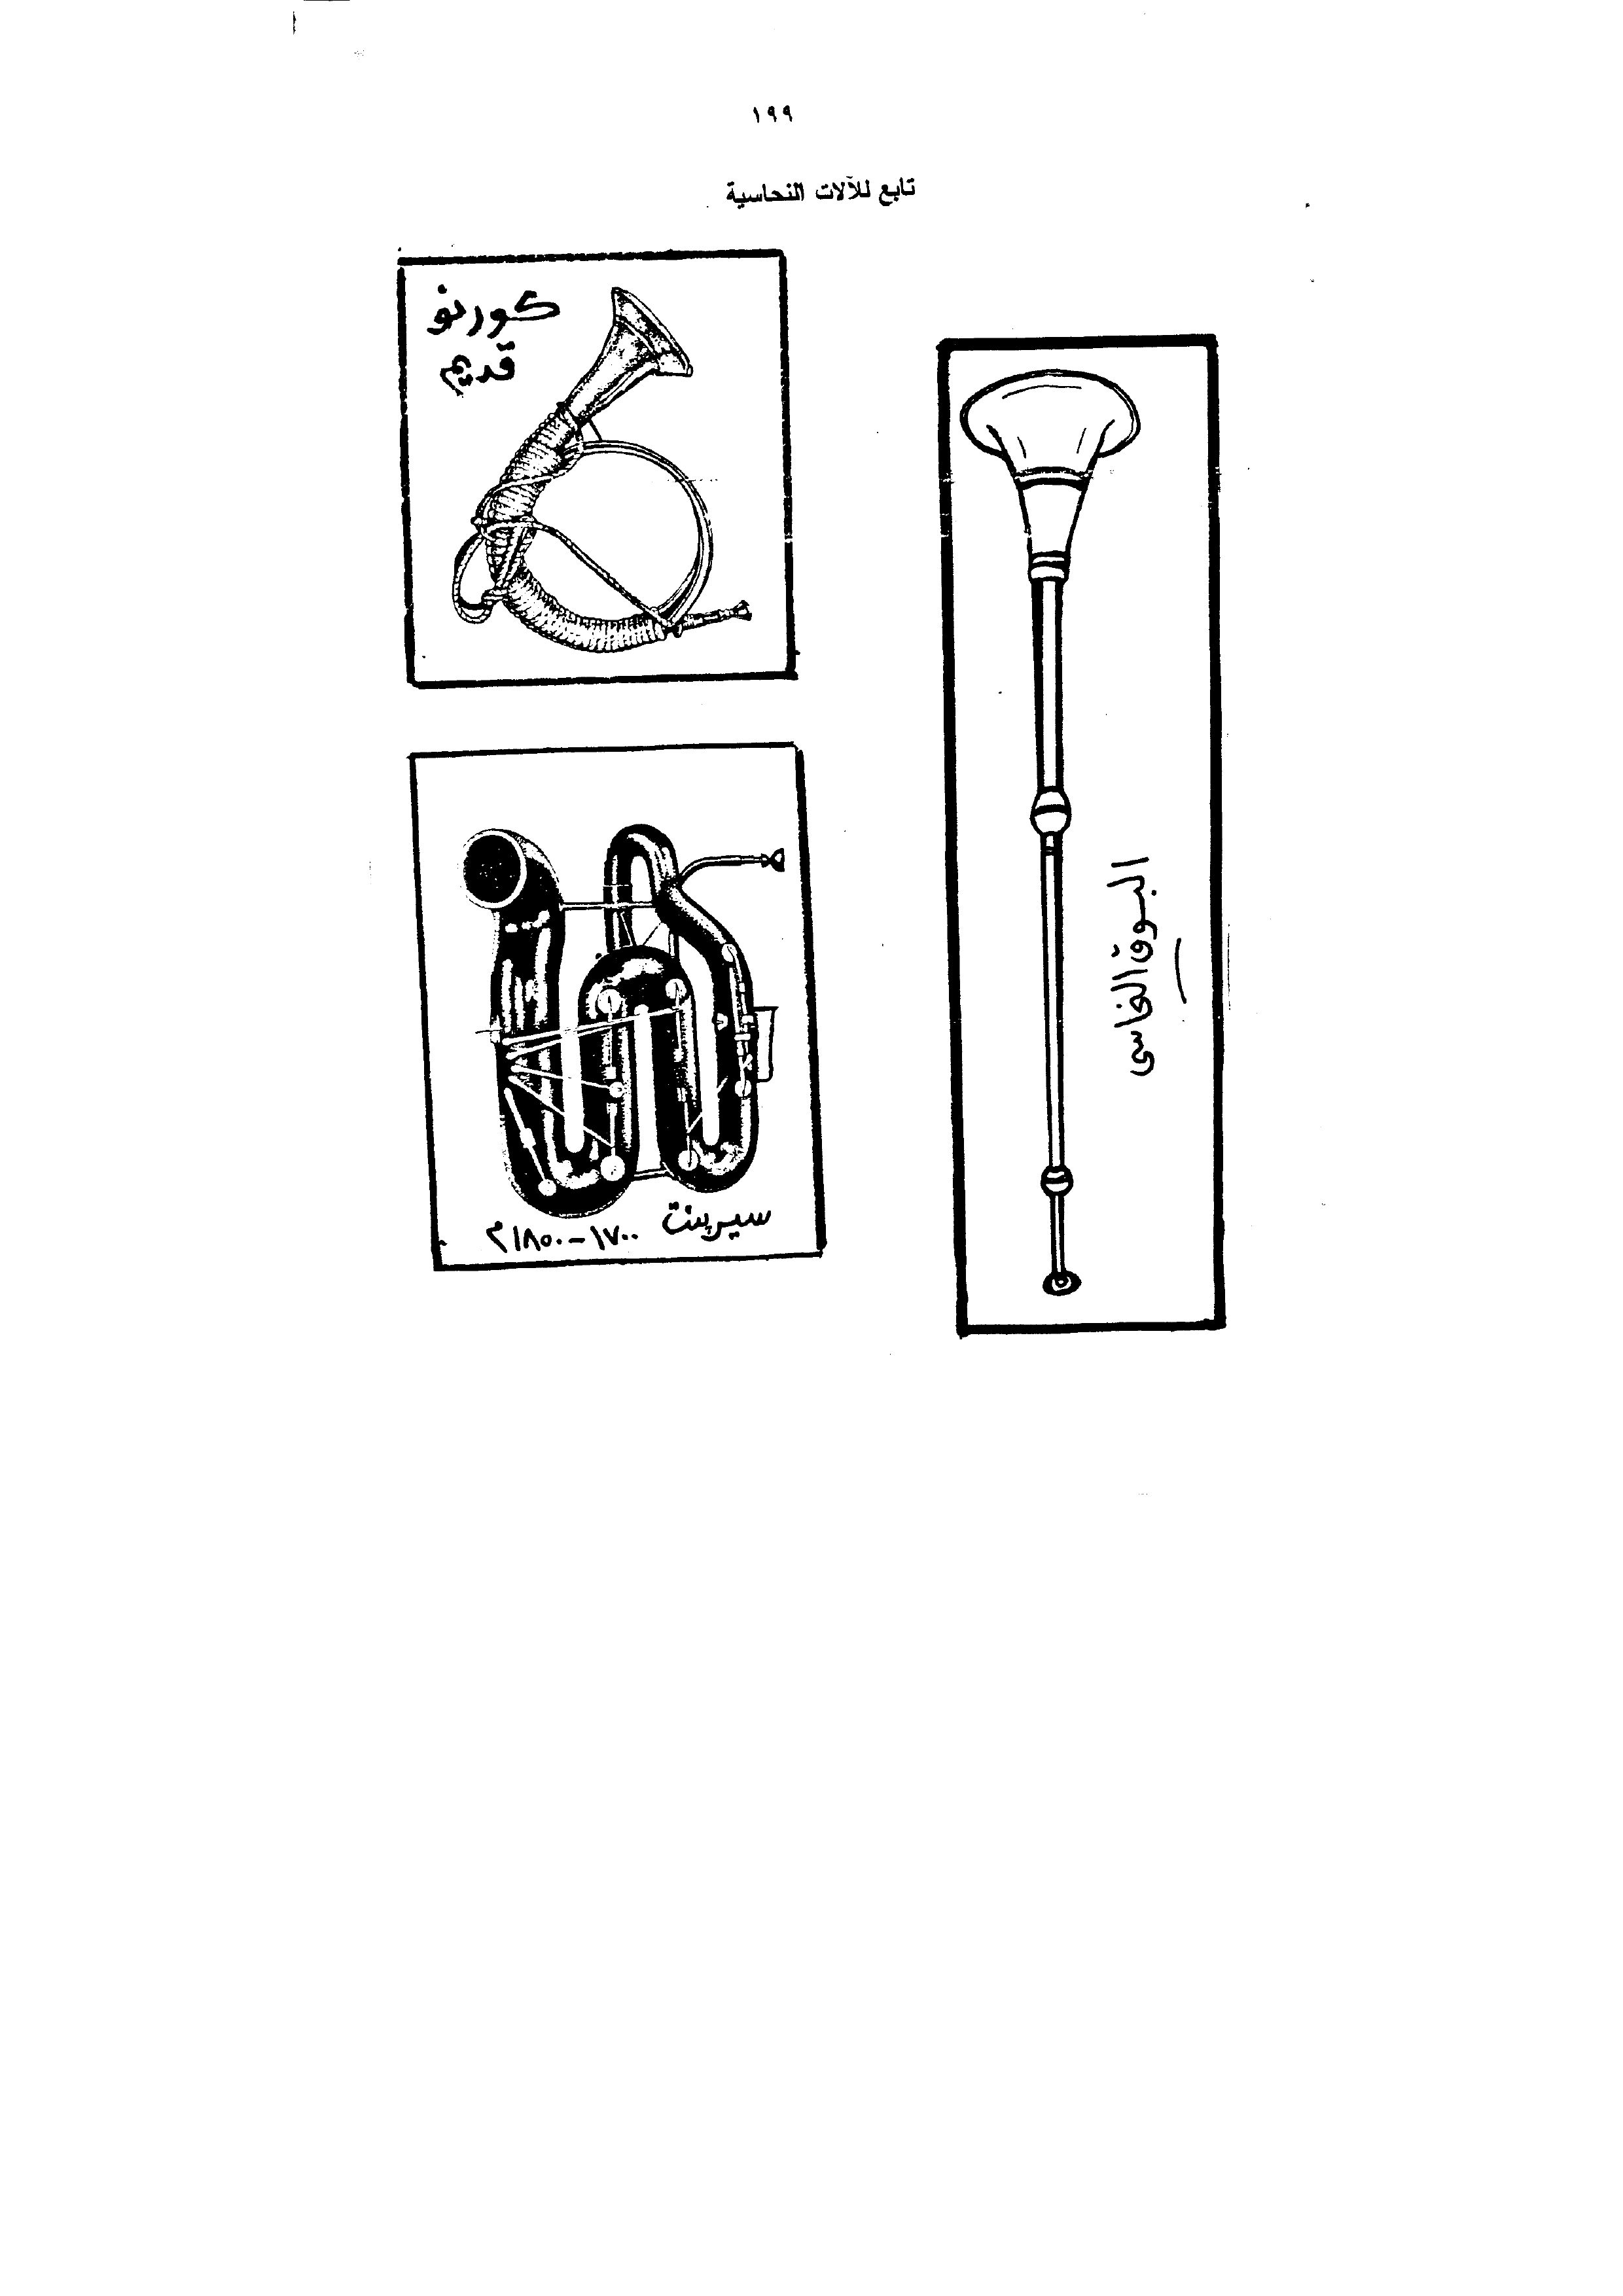 ١٩٩
تابع للآلات النحاسية
كورنو
قديم
البوق النحاسى
سيربنت
١٧٠٠-١٨٥٠م